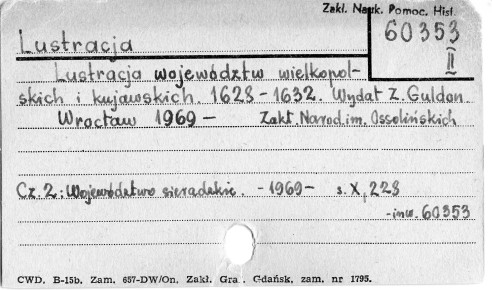 Zakł. Nauk. Pomoc. Hist.
60353
II
Lustracja
Lustracja województw wielkopol-
skich i kujawskich. 1628 - 1632. Wydał Z. Guldon
Wrocław 1969 - Zakł. Narod. im. Ossolińskich
Cz. 2: Województwo sieradzkie. - 1969 - s. X, 228
- inw. 60353
CWD. B-15b. Zam. 657-DW/On. Zakł. Gra. . Gdańsk, zam. nr 1795.